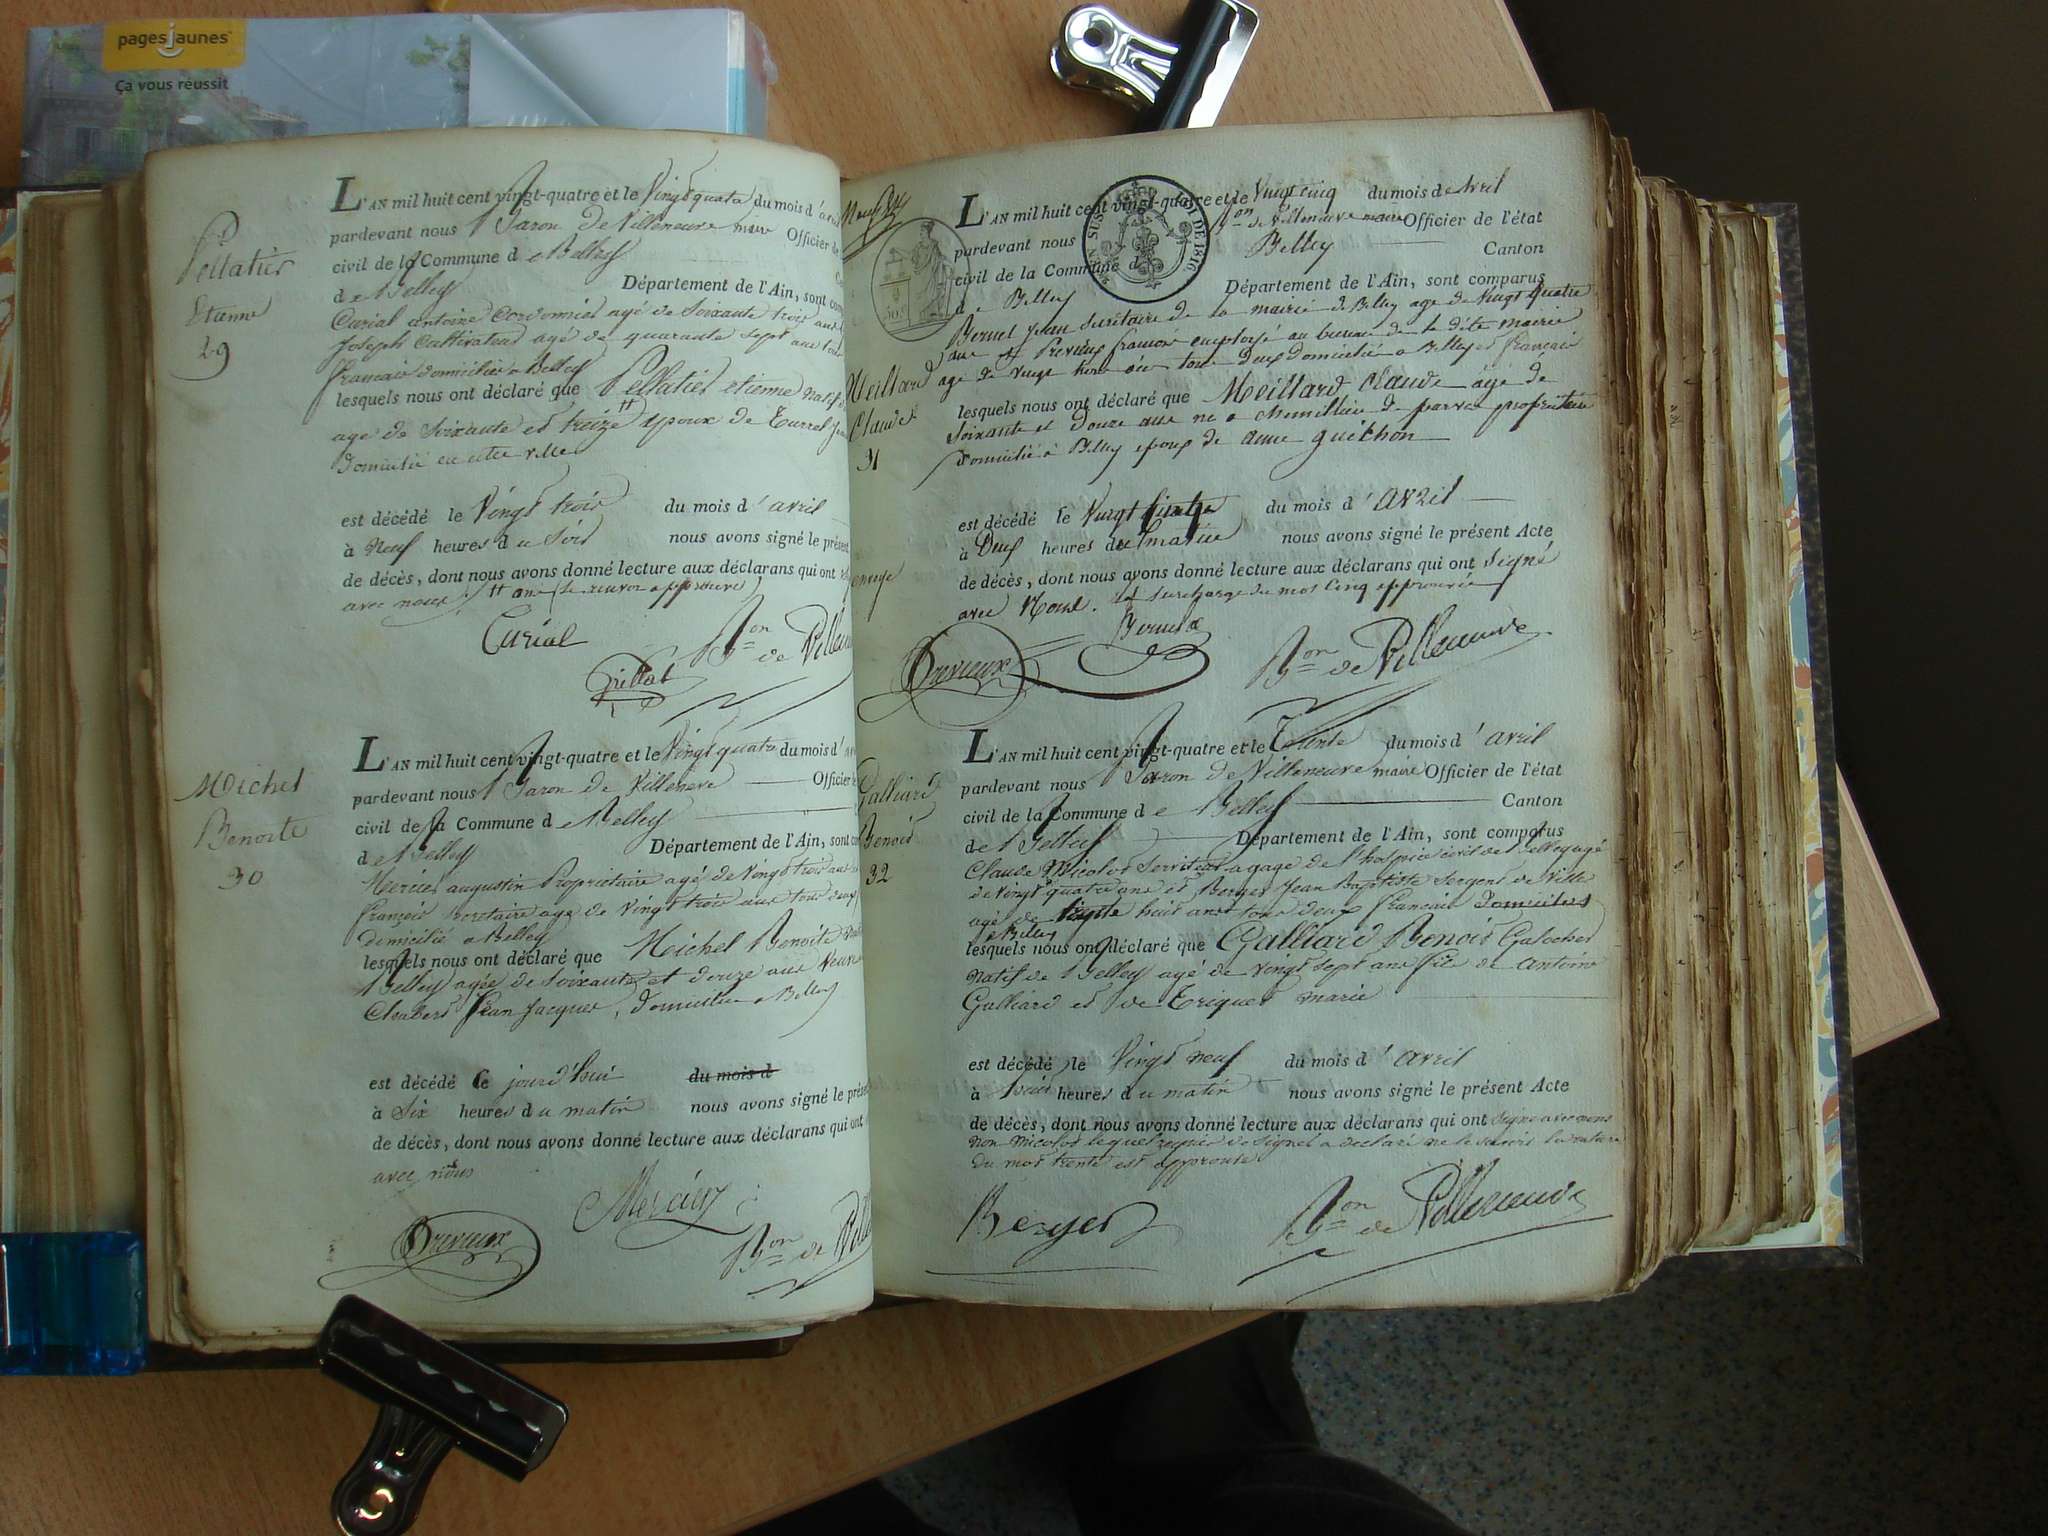 pagesjaunes
Ça vous réussit
Pellatier
Etienne
29
L'AN mil huit cent vingt-quatre et le Vingt quatre du mois d'avril
pardevant nous Baron de Villeneuve maire Officier de
civil de la Commune de Belley
de Belley Département de l'Ain, sont com
Curial antoine Cordonnier agé de Soixante trois ans
Joseph Cultivateur agé de quarante sept ans tous
français domiciliés a Belley
lesquels nous ont déclaré que Pellatier etienne natif
age de Soixante et treize epoux de Turrel
domicilié en cette ville
est décédé le Vingt trois du mois d'avril
à Neuf heures du Soir nous avons signé le présent
de décès, dont nous avons donné lecture aux déclarans qui ont
avec nous. ans le renvoi approuvé
Curial
Grillat
Bon de Villen
Michel
Benoite
30
L'AN mil huit cent vingt-quatre et le Vingt quatre du mois d'
pardevant nous Baron de Villeneuve Officier
civil de la Commune de Belley
de Belley Département de l'Ain, sont com
Mercier augustin Propriétaire agé de Vingt trois ans
françois secretaire age de vingt trois ans tous deux
domicilié a Belley
lesquels nous ont déclaré que Michel Benoite
Belley agée de soixante et douze ans Veuve
Chabert Jean Jacques, domiciliée a Belley
est décédé le jourd'hui du mois d
à Six heures du matin nous avons signé le prése
de décès, dont nous avons donné lecture aux déclarans qui ont
avec nous
Mercier
Previeux
Bon de Ville
SUS
ROI DE 1816
Meillard
Claude
31
L'AN mil huit cent vingt-quatre et le Vingt cinq du mois d'Avril
pardevant nous Bon de Villeneuve maire Officier de l'état
civil de la Commune de Belley Canton
de Belley Département de l'Ain, sont comparus
Bernel jean secrétaire de la mairie de Belley age de vingt quatre
ans et Previeux françois employé au bureau de la dite mairie
age de vingt trois ans tous deux domiciliés a Belley et français
lesquels nous ont déclaré que Meillard Claude âgé de
Soixante et Douze ans né a de parves propriétaire
domicilié à Belley epoux de anne guéthon
est décédé le Vingt quatre du mois d'avril
à Deux heures du matin nous avons signé le présent Acte
de décès, dont nous avons donné lecture aux déclarans qui ont signé
avec Nous. la surcharge du mot Cinq approuvée
Previeux
Bon de Villeneuve
Galliard
Benoit
32
L'AN mil huit cent vingt-quatre et le Trente du mois d'avril
pardevant nous Baron de Villeneuve maire Officier de l'état
civil de la Commune de Belley Canton
de Belley Département de l'Ain, sont comparus
Claude Nicolod Serviteur a gage de l'hospice civil de Belley agé
de vingt quatre ans et Berger Jean Baptiste Sergent de Ville
agé de trente huit ans tous deux français domiciliés
a Belley
lesquels nous ont déclaré que Galliard Benoit Galocher
natif de Belley agé de vingt sept ans fils de Antoine
Galliard et de Triquet marie
est décédé le Vingt neuf du mois d'avril
à huit heures du matin nous avons signé le présent Acte
de décès, dont nous avons donné lecture aux déclarans qui ont signé avec nous
non Nicolod lequel requis de signer a déclaré ne le savoir la rature
du mot trente est approuvée
Berger
Bon de Villeneuve